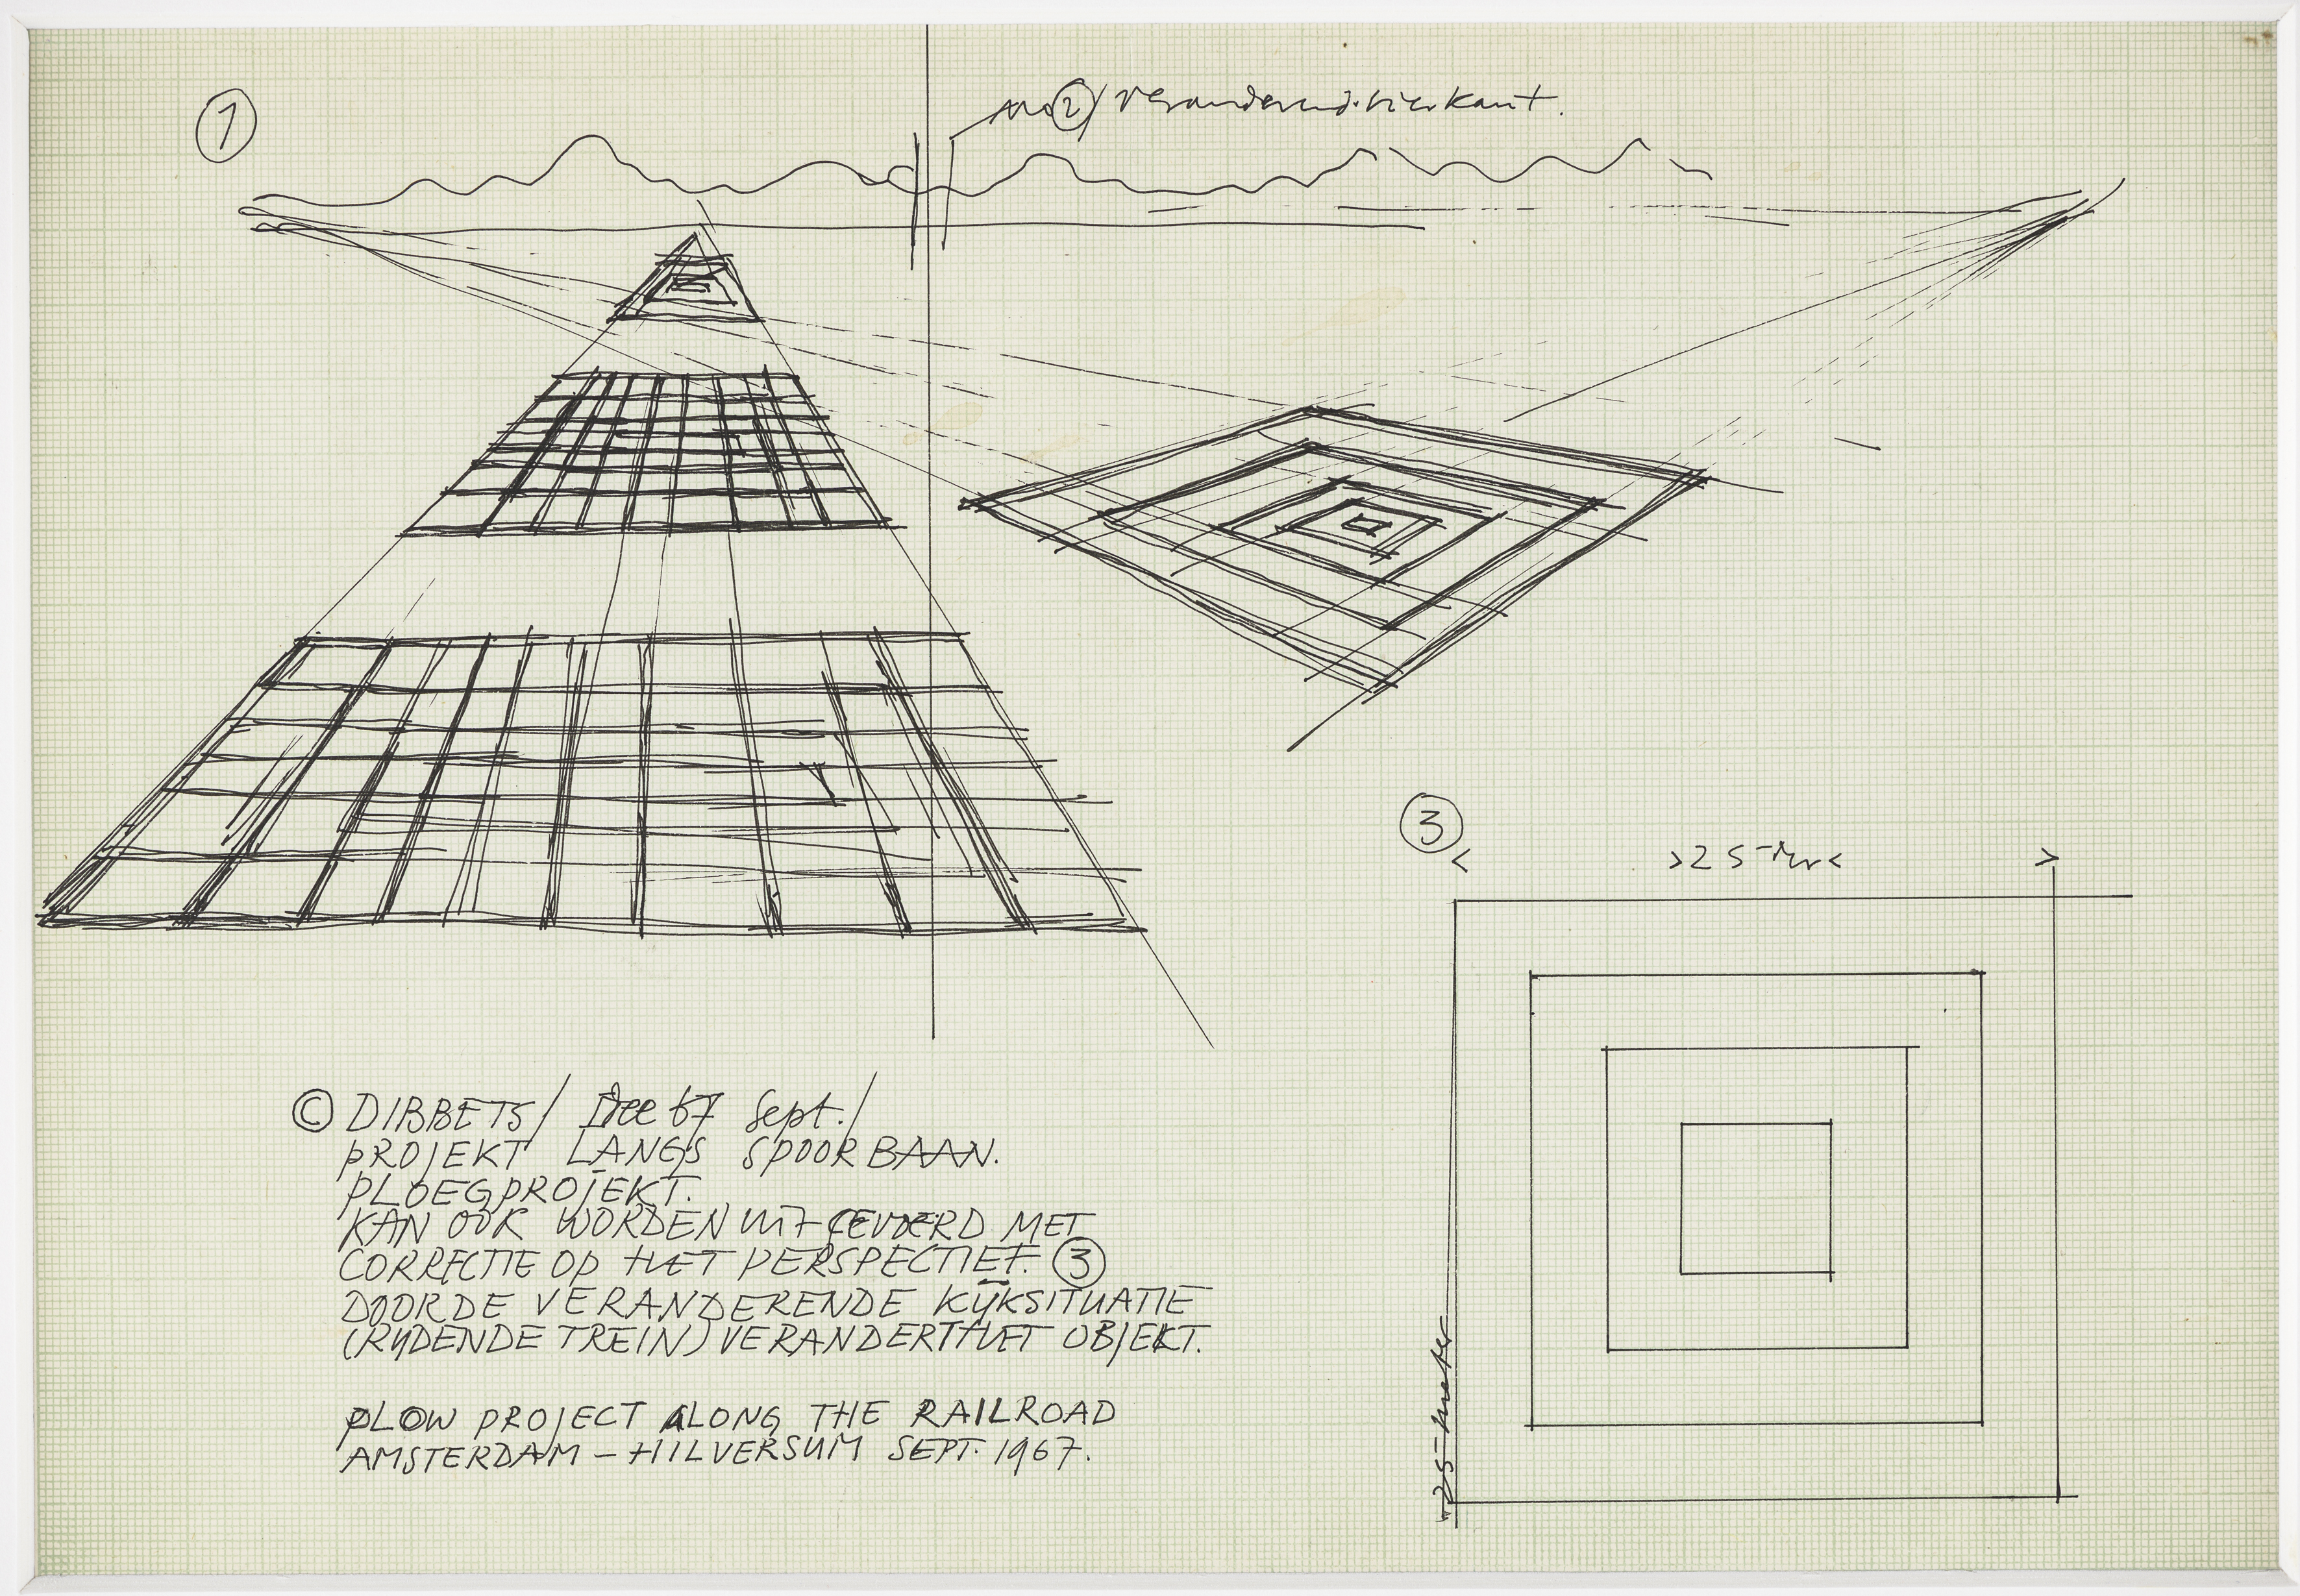 1
No 2/ veranderend vierkant.
3
< >25 mtr< >
25 meter
© DIBBETS/ Idee 67 Sept./
PROJEKT LANGS SPOORBAAN.
PLOEGPROJEKT.
KAN OOK WORDEN UITGEVOERD MET
CORRECTIE OP HET PERSPECTIEF. 3
DOOR DE VERANDERENDE KIJKSITUATIE
(RIJDENDE TREIN) VERANDERT HET OBJEKT.
PLOW PROJECT ALONG THE RAILROAD
AMSTERDAM – HILVERSUM SEPT. 1967.